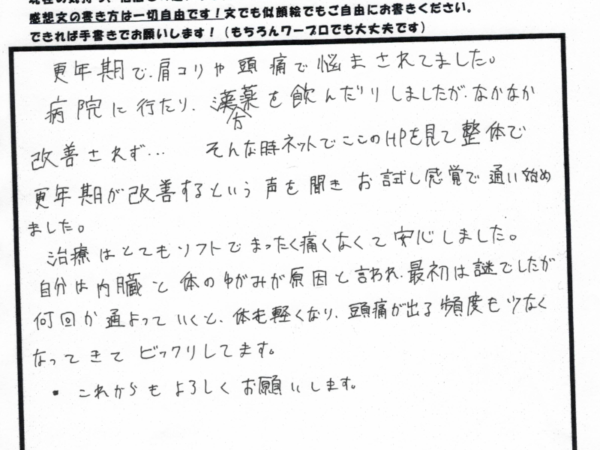 感想文の書き方は一切自由です！文でも似顔絵でもご自由にお書きください。
できれば手書きでお願いします！（もちろんワープロでも大丈夫です）
更年期で、肩コリや頭痛で悩まされてました。
病院に行たり、漢方薬を飲んだりしましたが、なかなか
改善されず… そんな時ネットでここのHPを見て整体で
更年期が改善するという声を聞きお試し感覚で通い始め
ました。
治療はとてもソフトでまったく痛くなくて安心しました。
自分は内臓と体のゆがみが原因と言われ、最初は謎でしたが
何回か通よっていくと、体も軽くなり、頭痛が出る頻度も少なく
なってきてビックリしてます。
・これからもよろしくお願いします。